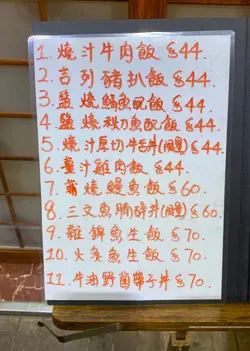 1. 燒汁牛肉飯 $44.
2. 吉列豬扒飯 $44.
3. 鹽燒鯖魚配飯 $44.
4. 鹽燒秋刀魚配飯 $44.
5. 燒汁厚切牛舌丼(限量) $44.
6. 薑汁雞肉飯 $44.
7. 蒲燒鰻魚飯 $60.
8. 三文魚腩碎丼(限量) $60.
9. 雜錦魚生飯 $70.
10. 火炙魚生飯 $70.
11. 牛油野菌帶子丼 $70.